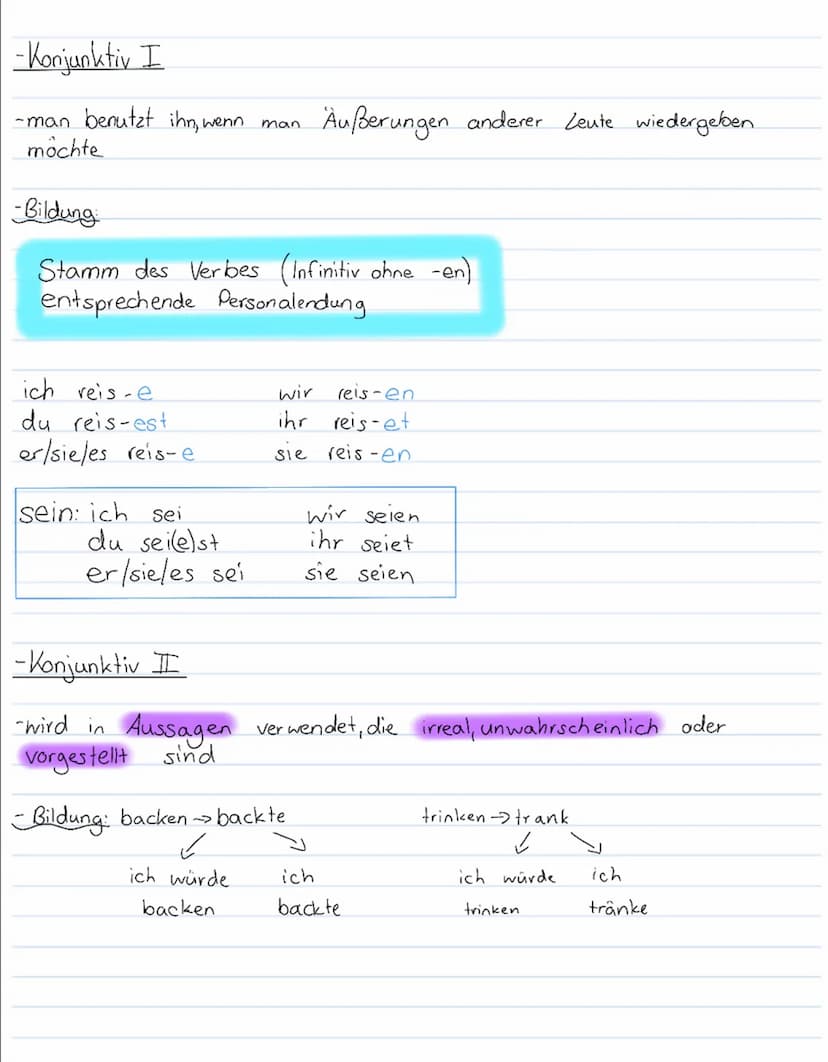 -Konjunktiv I
-man benutzt ihn, wenn man Äußerungen anderer Leute wiedergeben
möchte
-Bildung:
Stamm des Verbes (Infinitiv ohne -en)
entsprechende Personalendung
ich reis-e wir reis-en
du reis-est ihr reis-et
er/sie/es reis-e sie reis-en
sein: ich sei wir seien
du sei(e)st ihr seiet
er/sie/es sei sie seien
-Konjunktiv II
-wird in Aussagen verwendet, die irreal, unwahrscheinlich oder
vorgestellt sind
- Bildung: backen → backte trinken → trank
ich würde ich ich würde ich
backen backte trinken tränke